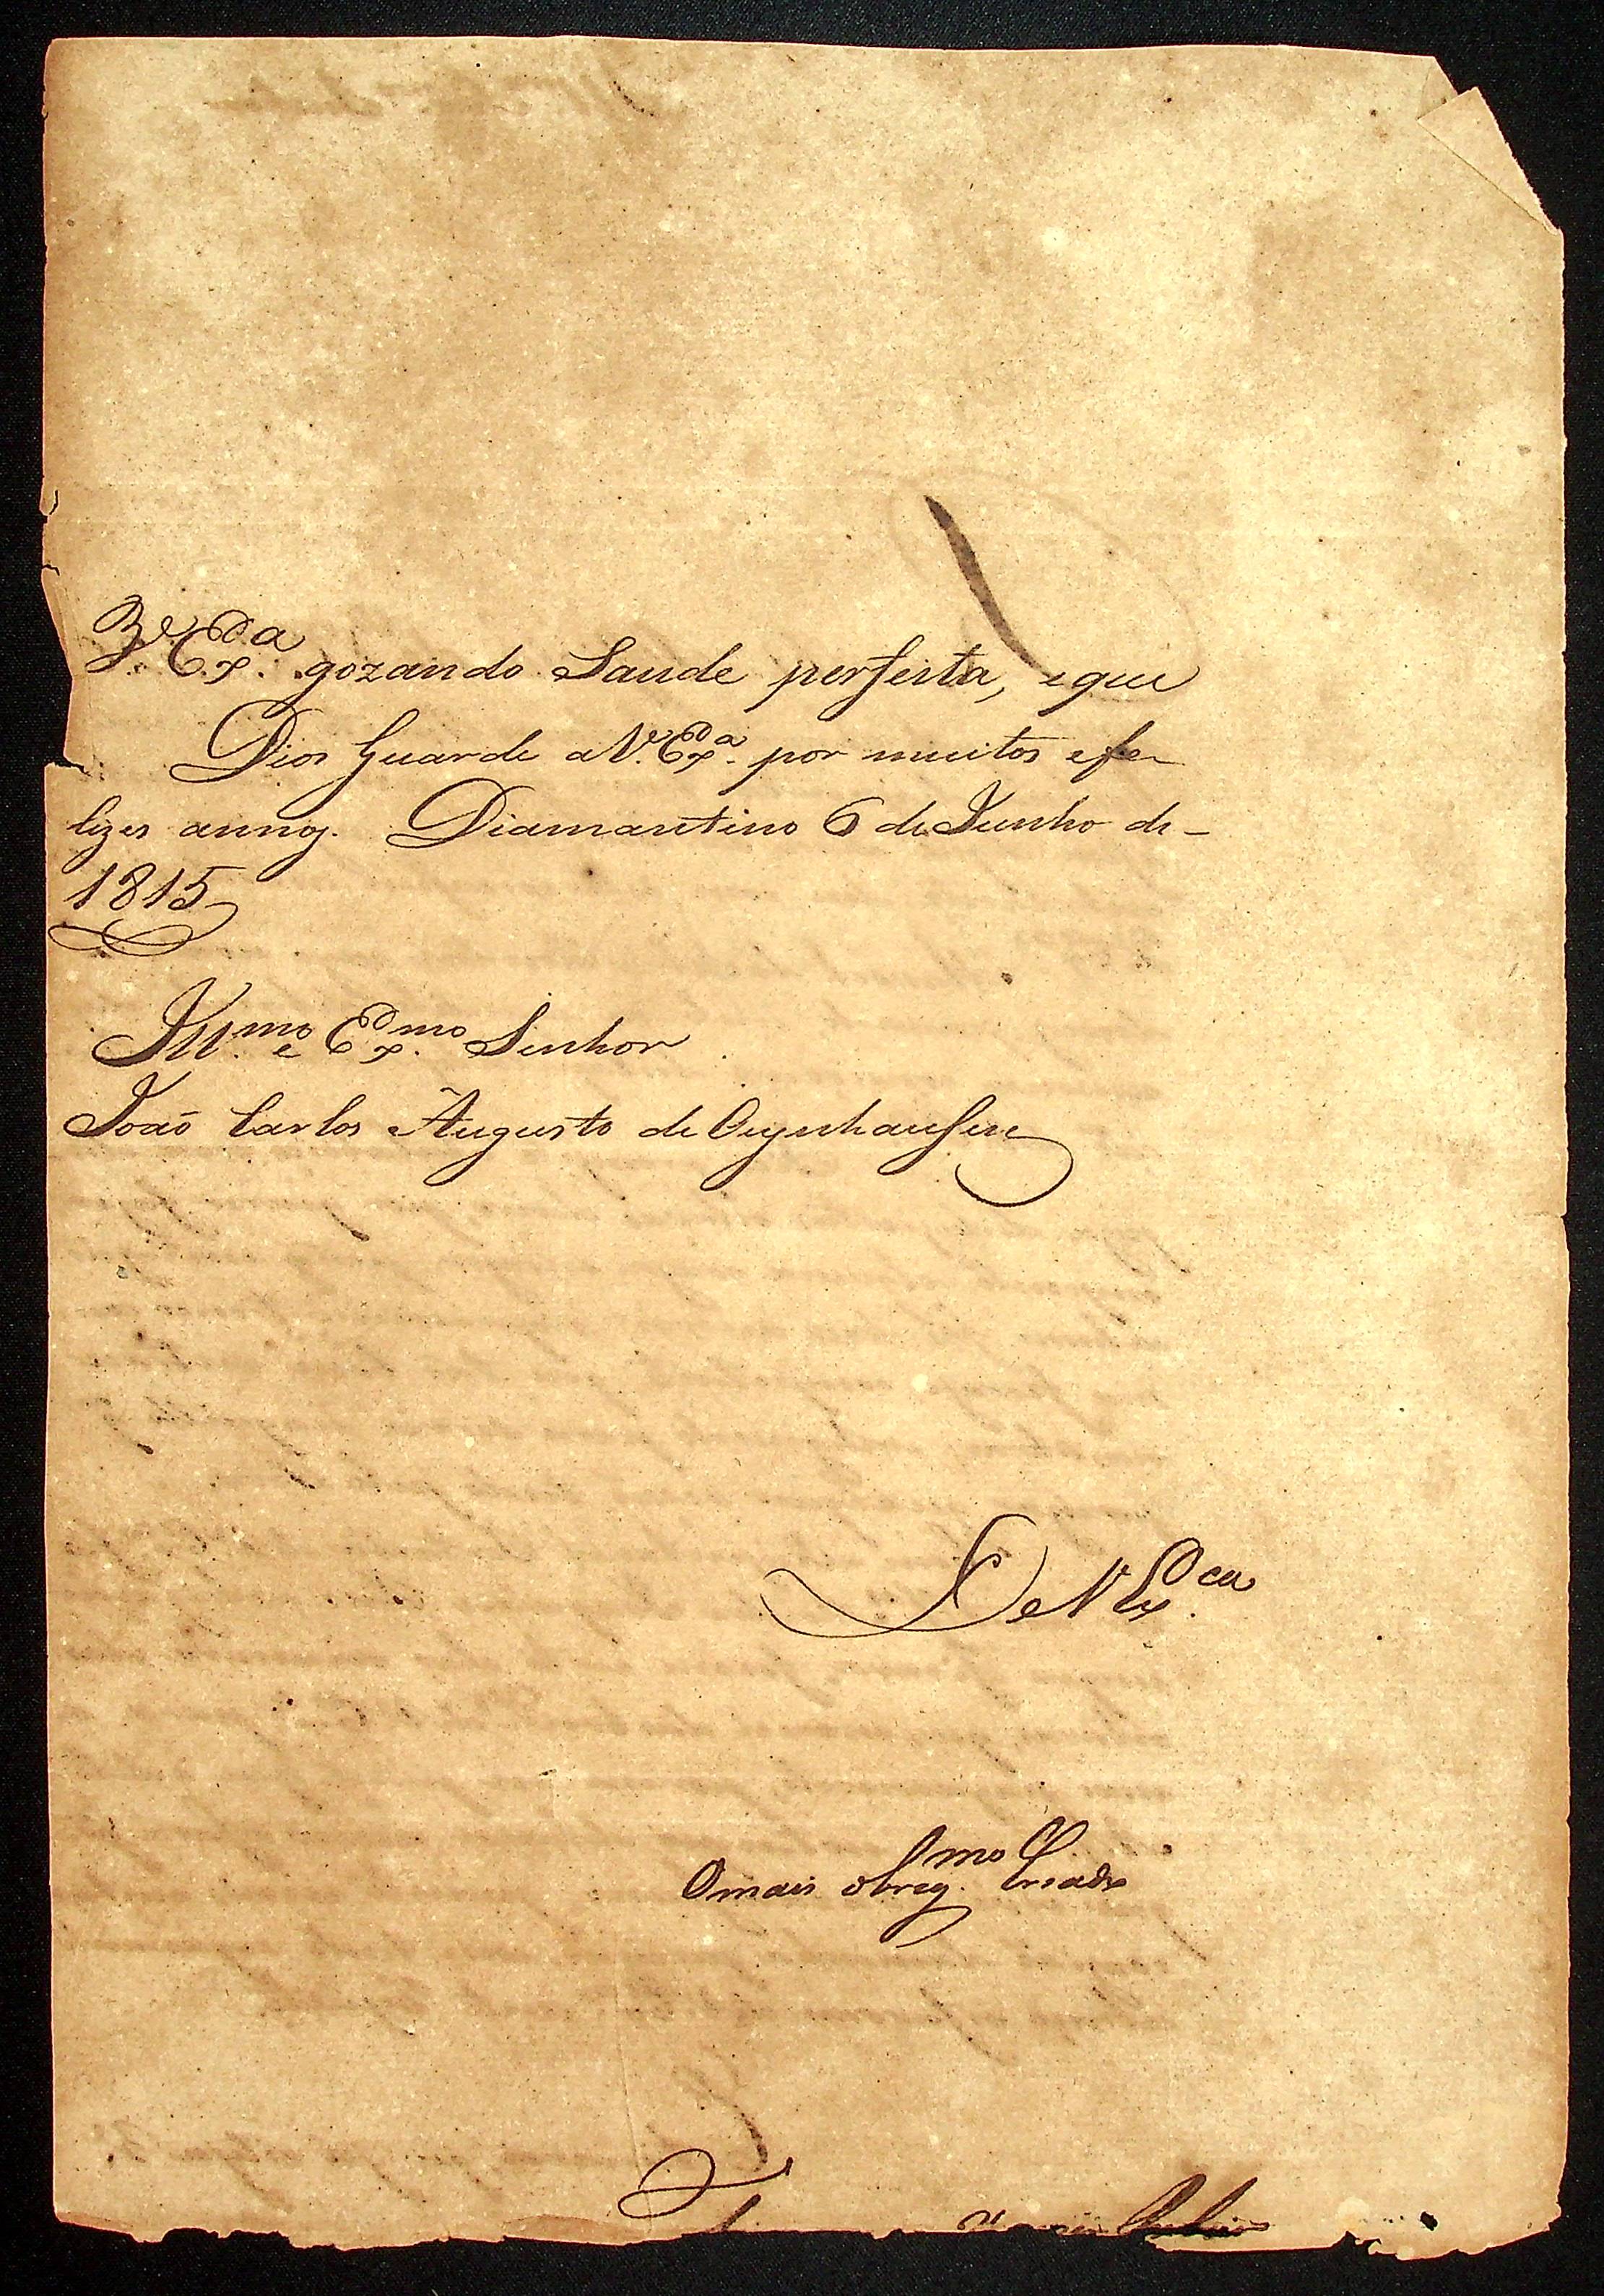 V.ª Ex.ª gozando Saude perfeita, eque
Deos Guarde aV.ª Ex.ª por muitos efe
lizes annos. Diamantino 6 de Junho de
1815
Ill.mo e Ex.mo Senhor
João Carlos Augusto de Oeynhausen
De V Ex.cia
Omais obrig.mo Creado